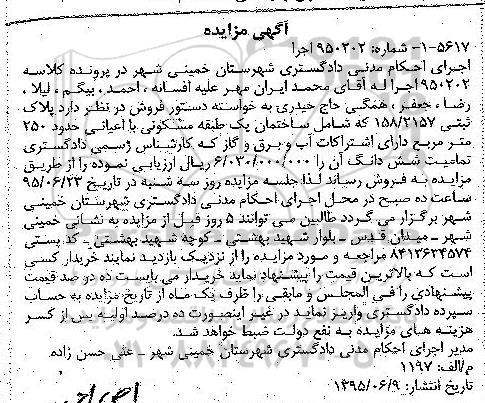 آگهی مزایده
۱-۵۶۱۷- شماره: ۹۵۰۲۰۲ اجرا
اجرای احکام مدنی دادگستری شهرستان خمینی شهر در پرونده کلاسه
۹۵۰۲۰۲ اجرا له آقای محمد ایران مهر علیه افسانه ، احمد ، بیگم ، لیلا ،
رضا ، جعفر ، همگی حاج حیدری به خواسته دستور فروش در نظر دارد پلاک
ثبتی ۱۵۸/۲۱۵۷ که شامل ساختمان یک طبقه مسکونی با اعیانی حدود ۲۵۰
متر مربع دارای اشتراکات آب و برق و گاز که کارشناس رسمی دادگستری
تمامیت شش دانگ آن را ۶/۰۲۰/۰۰۰/۰۰۰ ریال ارزیابی نموده را از طریق
مزایده به فروش رساند لذا جلسه مزایده روز سه شنبه در تاریخ ۹۵/۰۶/۲۳
ساعت ده صبح در محل اجرای احکام مدنی دادگستری شهرستان خمینی
شهر برگزار می گردد طالبین می توانند ۵ روز قبل از مزایده به نشانی خمینی
شهر ـ میدان قدس ـ بلوار شهید بهشتی ـ کوچه شهید بهشتی ـ کد پستی
۸۴۱۳۶۳۴۵۷۴ مراجعه و مورد مزایده را از نزدیک بازدید نمایند خریدار کسی
است که بالاترین قیمت را پیشنهاد نماید خریدار می بایست ده در صد قیمت
پیشنهادی را فی المجلس و مابقی را ظرف یک ماه از تاریخ مزایده به حساب
سپرده دادگستری واریز نماید در غیر اینصورت ده درصد اولیه پس از کسر
هزینه های مزایده به نفع دولت ضبط خواهد شد.
مدیر اجرای احکام مدنی دادگستری شهرستان خمینی شهر ـ علی حسن زاده
م/الف: ۱۱۹۷
تاریخ انتشار: ۱۳۹۵/۰۶/۹